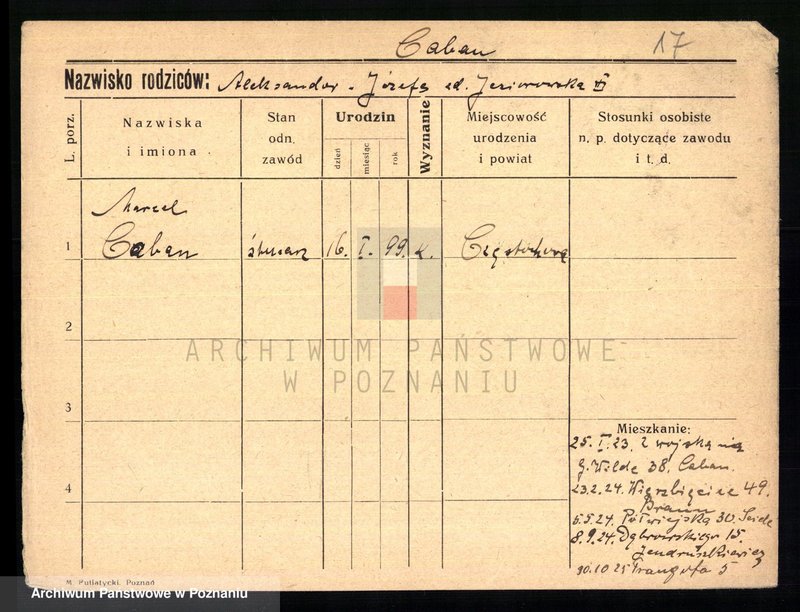 Caban 17
Nazwisko rodziców: Aleksander - Józefa Jeziorowska
L. porz.
Nazwiska i imiona
Stan odn. zawód
Urodzin
dzień miesiąc rok
Wyznanie
Miejscowość urodzenia i powiat
Stosunki osobiste n. p. dotyczące zawodu i t. d.
Marcel
1 Caban ślusarz 16. I. 99. k. Częstochowa
2
ARCHIWUM PAŃSTWOWE
W POZNANIU
3
Mieszkanie:
25. I. 23. z wojska na
G. Wilda 38, Caban.
4
23.2.24. Wierzbięcice 49.
Braun
5.24. Półwiejska 30. Seide
8.9.24. Dąbrowskiego 15.
Jendruszkiewicz
30.10.25 5
M. Putiatycki, Poznań
Archiwum Państwowe w Poznaniu